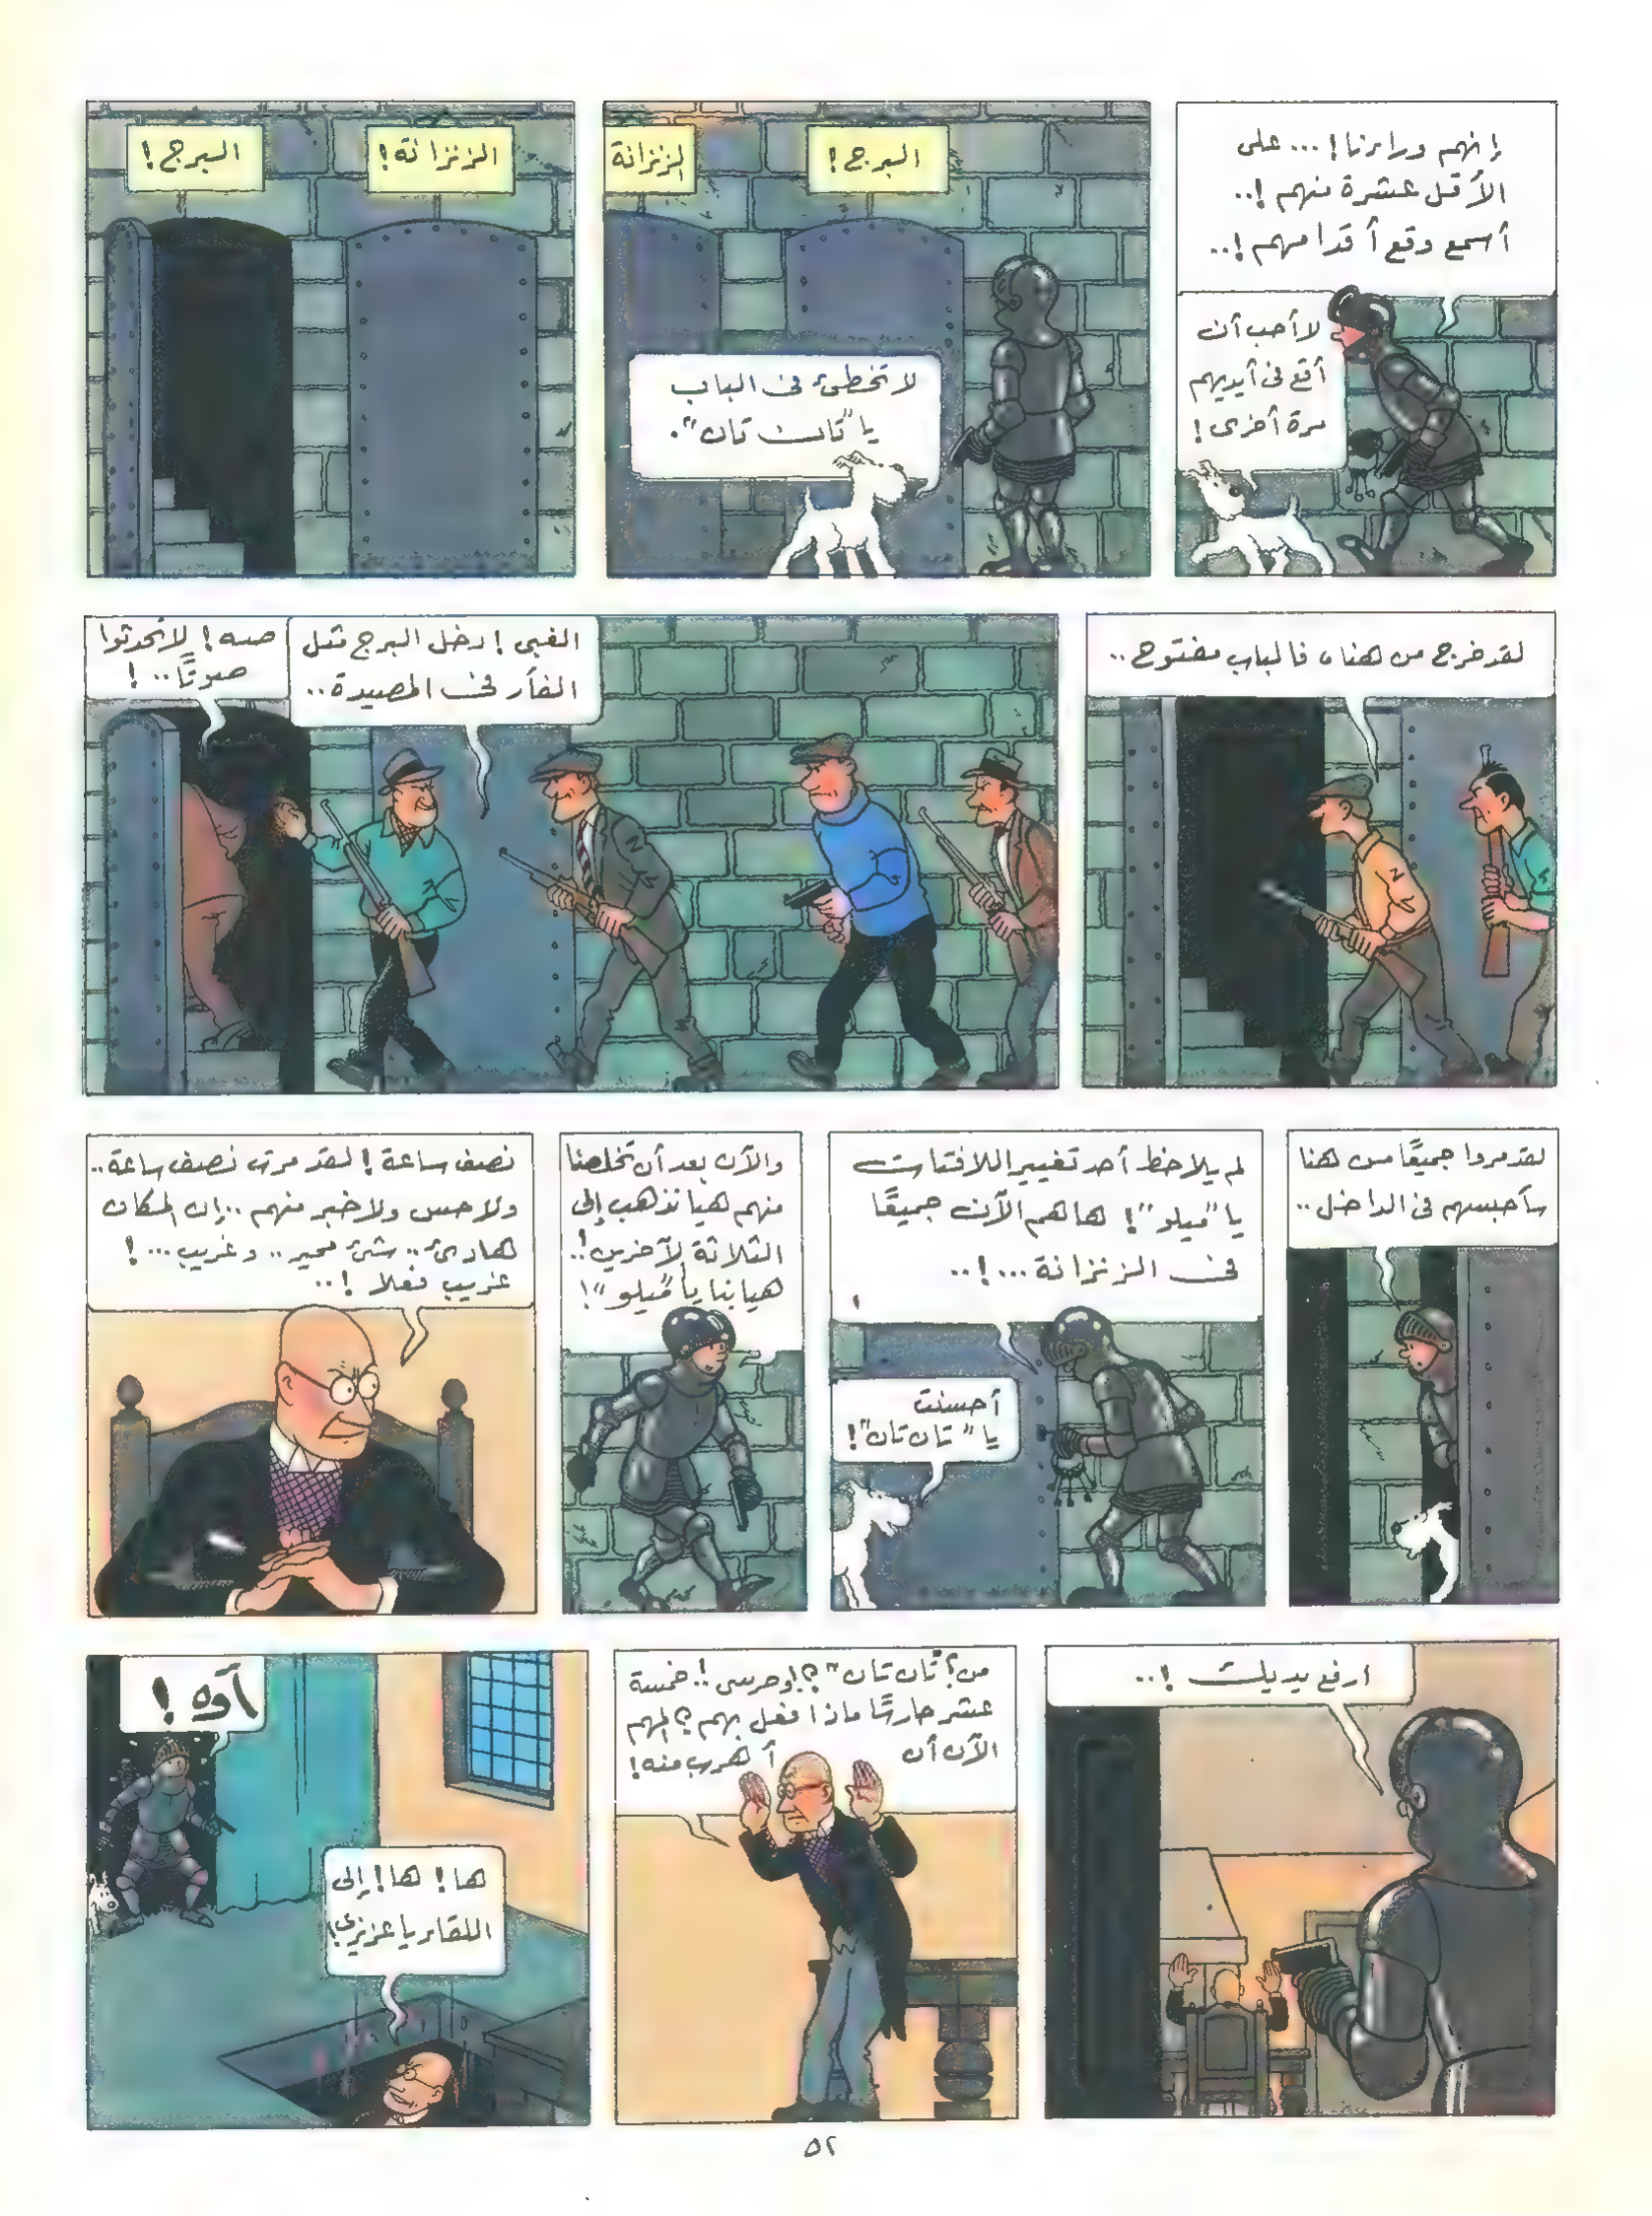 إنهم وراءنا!...على
الأقل عشرة منهم!..
أسمع وقع أقدامهم!..
لا أحب أن
أقع فى أيديهم
مرة أخرى!
البرج!
الزنزانة
لا تخطئ فى الباب
يا "تان تان".
الزنزانة!
البرج!
لقد خرج من هنا، فالباب مفتوح..
الغبى! دخل البرج مثل
الفأر فى المصيدة..
صه! لا تحدثوا
صوتًا..!
لقد مروا جميعًا من هنا
سأحبسهم فى الداخل..
لم يلاحظ أحد تغيير اللافتات
يا "ميلو"! ها هم الآن جميعًا
فى الزنزانة...!..
أحسنت
يا "تان تان"!
والآن بعد أن تخلصنا
منهم هيا نذهب إلى
الثلاثة الآخرين!..
هيا بنا يا "ميلو"!
نصف ساعة! لقد مرت نصف ساعة..
ولا حس ولا خبر منهم..إن المكان
هادئ.. شئ محير.. وغريب...!
غريب فعلا!..
ارفع يديك!..
من؟ "تان تان"؟! وحرسى!.. خمسة
عشر حارسًا ماذا فعل بهم؟ المهم
الآن أن أهرب منه!
آوه!
ها! ها! إلى
اللقاء يا عزيزى!
٥٢